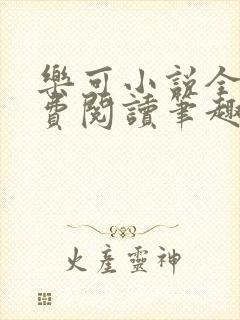 樂可小說全
費閱讀筆趣
火產靈神